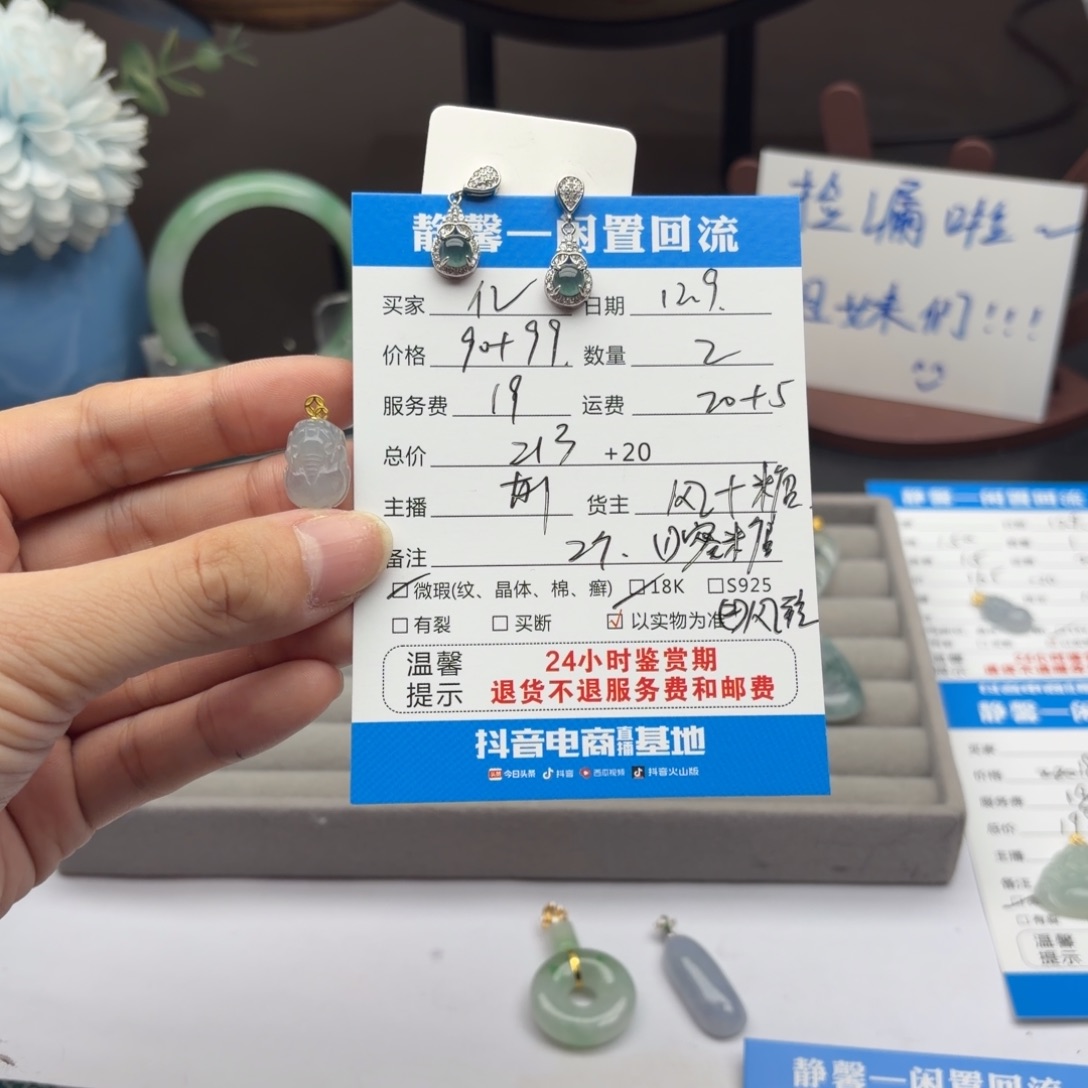 静馨一闲置回流
买家 亿 日期 12.9.
价格 90+99. 数量 2
服务费 19 运费 20+5
总价 213 +20
主播 货主 风+糖
备注 27.
微瑕(纹、晶体、棉、癣) 18K S925
有裂 买断 以实物为准
温馨提示
24小时鉴赏期
退货不退服务费和邮费
抖音电商直播基地
今日头条 抖音 西瓜视频 抖音火山版
捡漏啦~
姐妹们!!!
静馨一闲置回流
价格
服务费
总价
主播
备注
温馨
提示
静馨一闲置回流